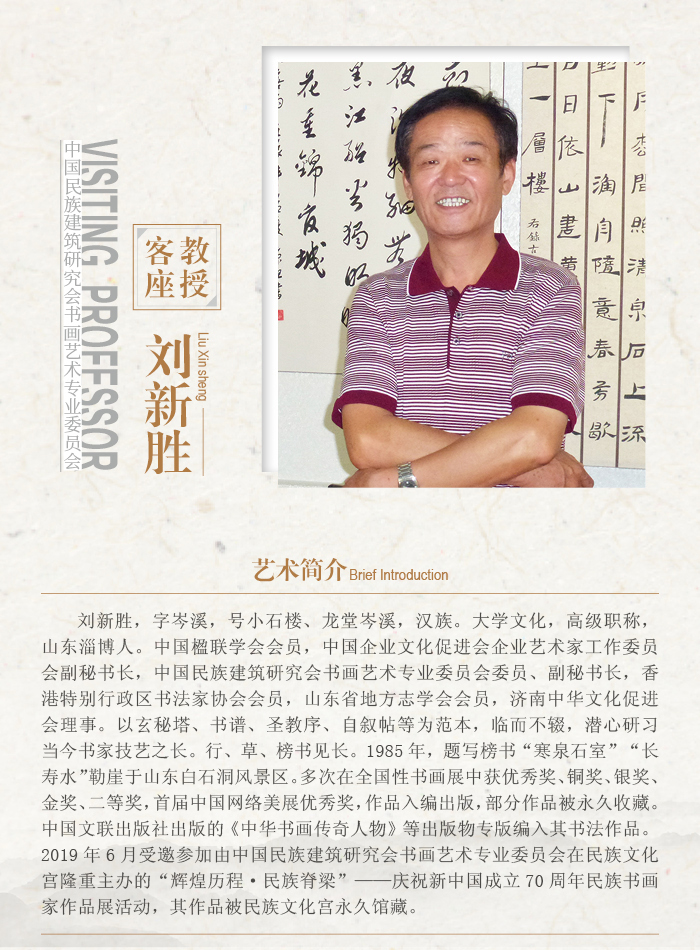 中国民族建筑研究会书画艺术专业委员会
VISITING PROFESSOR
客座教授
刘新胜
Liu Xin sheng
花重錦官城
黑江船火獨明
上一層樓
白日依山盡黄
下淘自
隨意春芳歇
松間照清泉石上流
艺术简介 Brief Introduction
刘新胜，字岑溪，号小石楼、龙堂岑溪，汉族。大学文化，高级职称，
山东淄博人。中国楹联学会会员，中国企业文化促进会企业艺术家工作委员
会副秘书长，中国民族建筑研究会书画艺术专业委员会委员、副秘书长，香
港特别行政区书法家协会会员，山东省地方志学会会员，济南中华文化促进
会理事。以玄秘塔、书谱、圣教序、自叙帖等为范本，临而不辍，潜心研习
当今书家技艺之长。行、草、榜书见长。1985 年，题写榜书“寒泉石室”“长
寿水”勒崖于山东白石洞风景区。多次在全国性书画展中获优秀奖、铜奖、银奖、
金奖、二等奖，首届中国网络美展优秀奖，作品入编出版，部分作品被永久收藏。
中国文联出版社出版的《中华书画传奇人物》等出版物专版编入其书法作品。
2019 年 6 月受邀参加由中国民族建筑研究会书画艺术专业委员会在民族文化
宫隆重主办的“辉煌历程·民族脊梁”——庆祝新中国成立 70 周年民族书画
家作品展活动，其作品被民族文化宫永久馆藏。